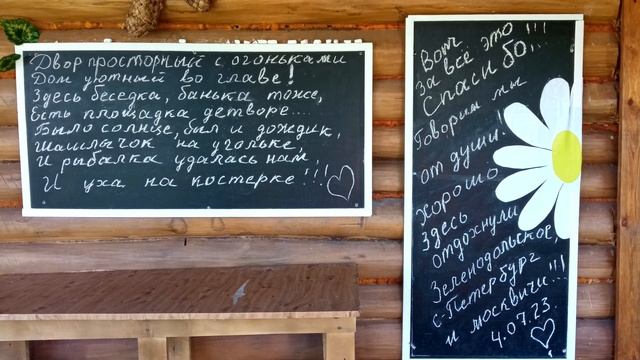 Двор просторный с огоньками
Дом уютный во главе!
Здесь беседка, банька тоже,
Есть площадка детворе....
Было солнце, был и дождик,
Шашлычок на угольке,
И рыбалка удалась нам,
И уха на костерке!!!
Вот
за всё это !!!
Спасибо...
Говорим мы
от души!
Хорошо
Здесь
отдохнули
Зеленодольское,
с-Петербург
и москвичи!!!
4.07.23.